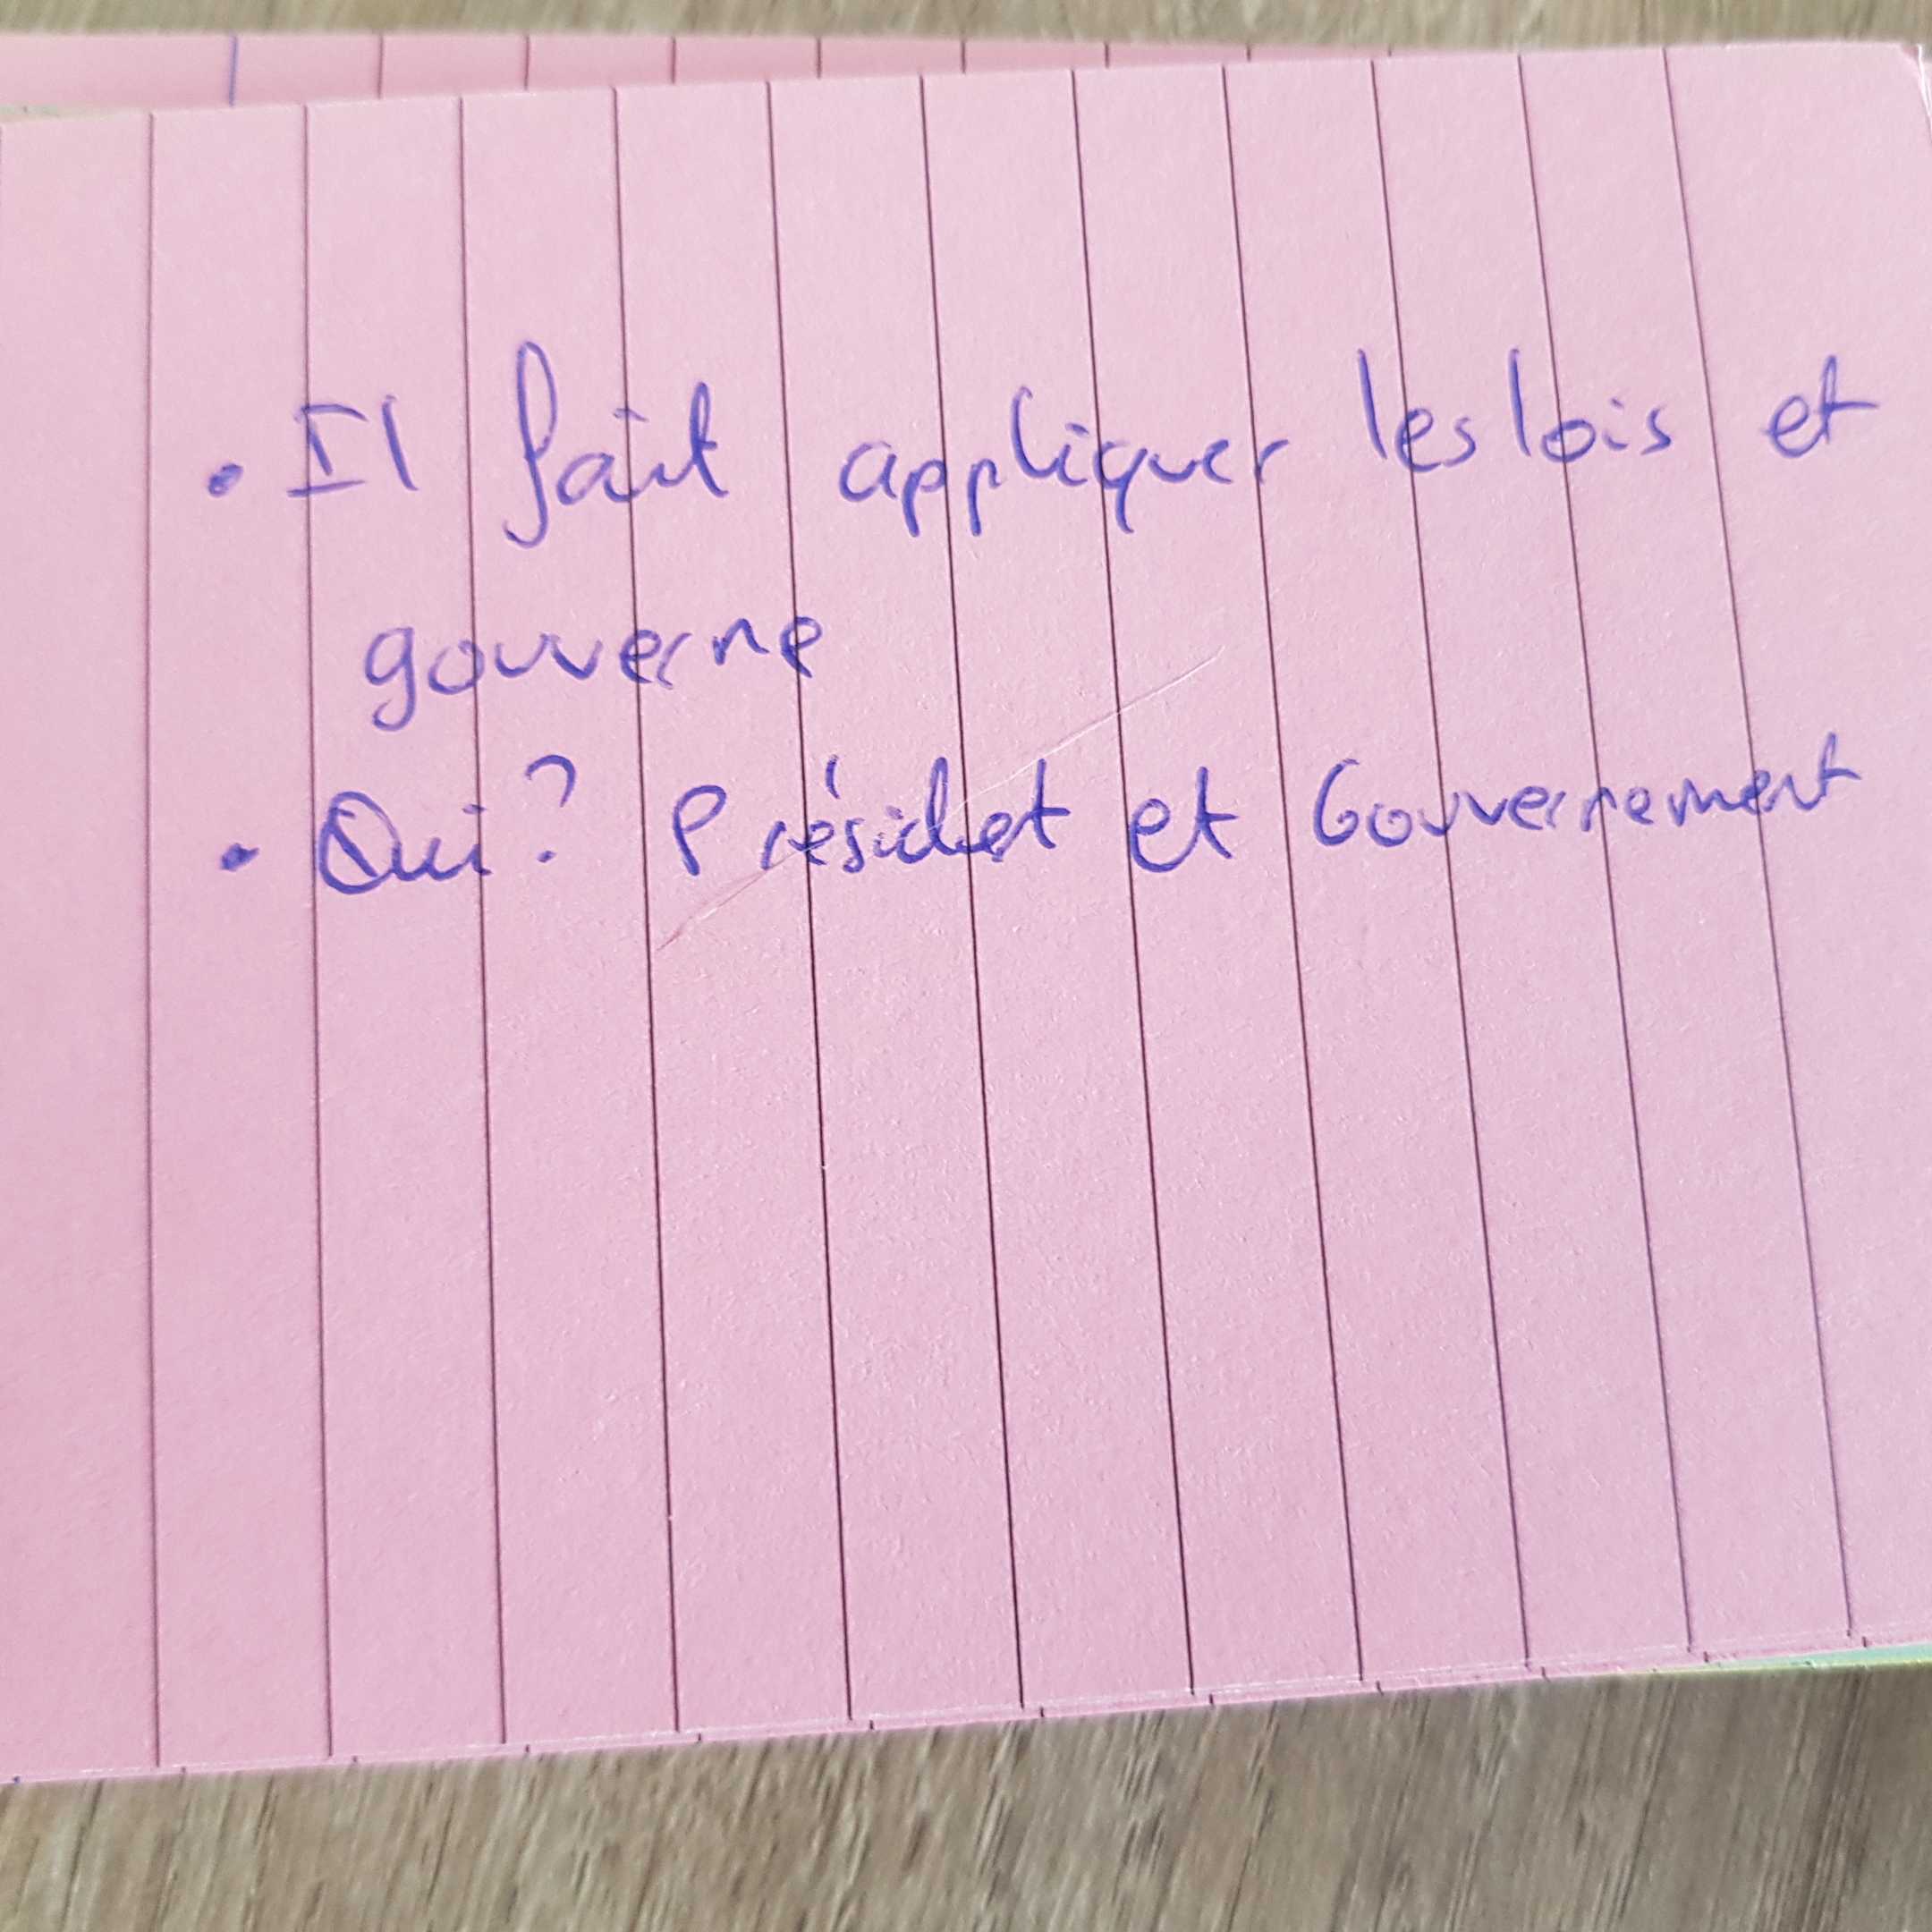 • Il fait appliquer les lois et
gouverne
• Qui? Présidet et Gouvernement